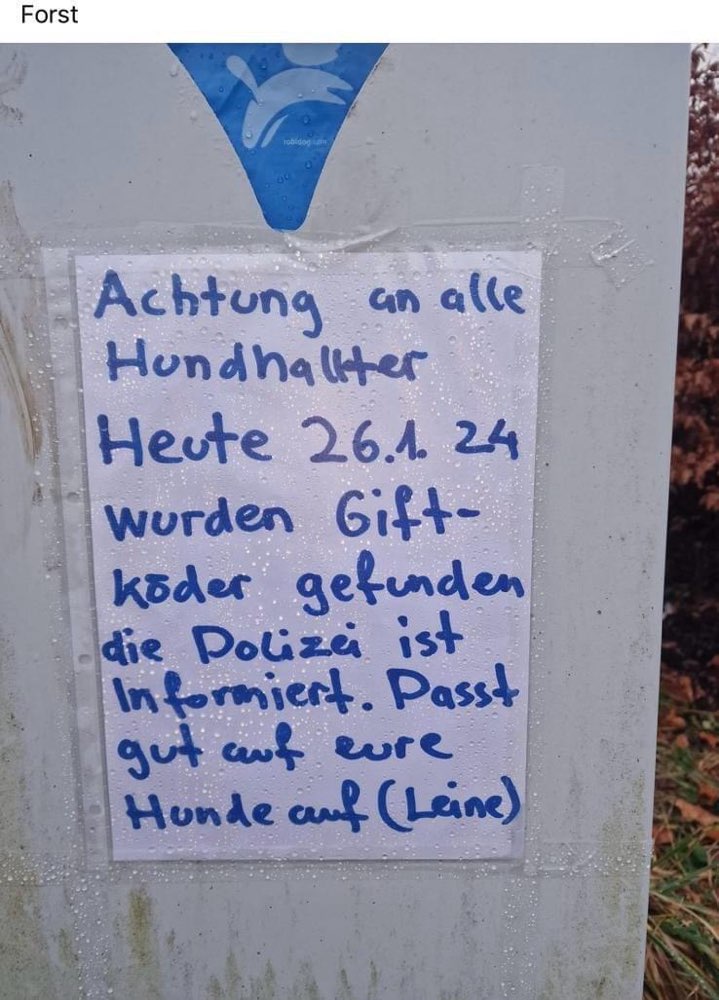 Forst
robidog.com
Achtung an alle
Hundhallter
Heute 26.1. 24
wurden Gift-
köder gefunden
die Polizei ist
Informiert. Passt
gut auf eure
Hunde auf (Leine)